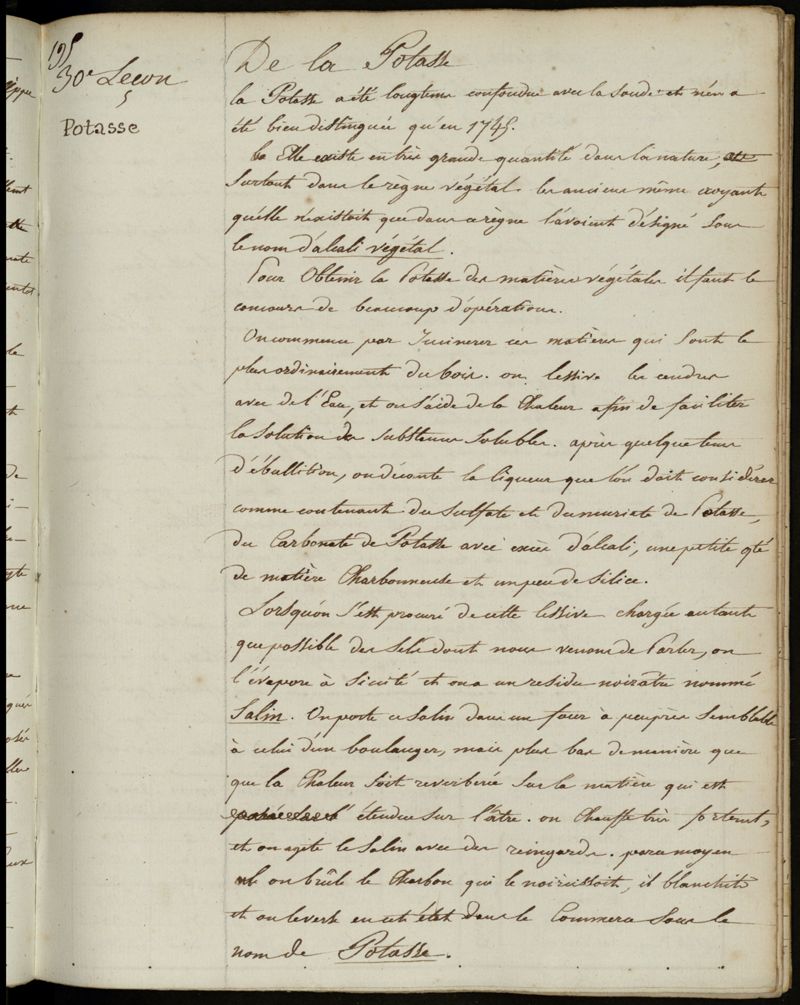 195
30e Lecon
Potasse
De la Potasse
la Potasse a été longtems confondue avec la Soude et n'en a
été bien distinguée qu'en 1745.
Elle existe en très grande quantité dans la nature,
Surtout dans le règne végétal. les anciens même croyant
qu'elle n'existoit que dans ce règne l'avoient désigné Sous
le nom d'alcali végétal.
Pour Obtenir la Potasse des matières végétales il faut le
concours de beaucoup d'opérations.
On commence par Incinerer ces matières qui Sont le
plus ordinairement du bois. on lessive les cendres
avec de l'Eau, et on S'aide de la Chaleur afin de faciliter
la Solution des Substances Solubles. après quelque tems
d'ébullition, on décante la liqueur que l'on doit considérer
comme contenant du Sulfate et du muriate de Potasse,
du Carbonate de Potasse avec excès d'alcali, une petite qté
de matière Charbonneuse et un peu de Silice.
Lorsqu'on S'est procuré de cette lessive chargée autant
que possible des Sels dont nous venons de Parler, on
l'évapore à Siccité et on a un residu noirâtre nommé
Salin. On porte ce Salin dans un four à peuprès Semblable
à celui d'un boulanger, mais plus bas de manière que
que la Chaleur Soit reverberée Sur la matière qui est
étendue sur l'âtre. on Chauffe très fortemt,
et on agite le Salin avec des ringards. par ce moyen
on brûle le Charbon qui le noircissoit, il blanchit
et on le verse en cet état dans le Commerce Sous le
nom de Potasse.